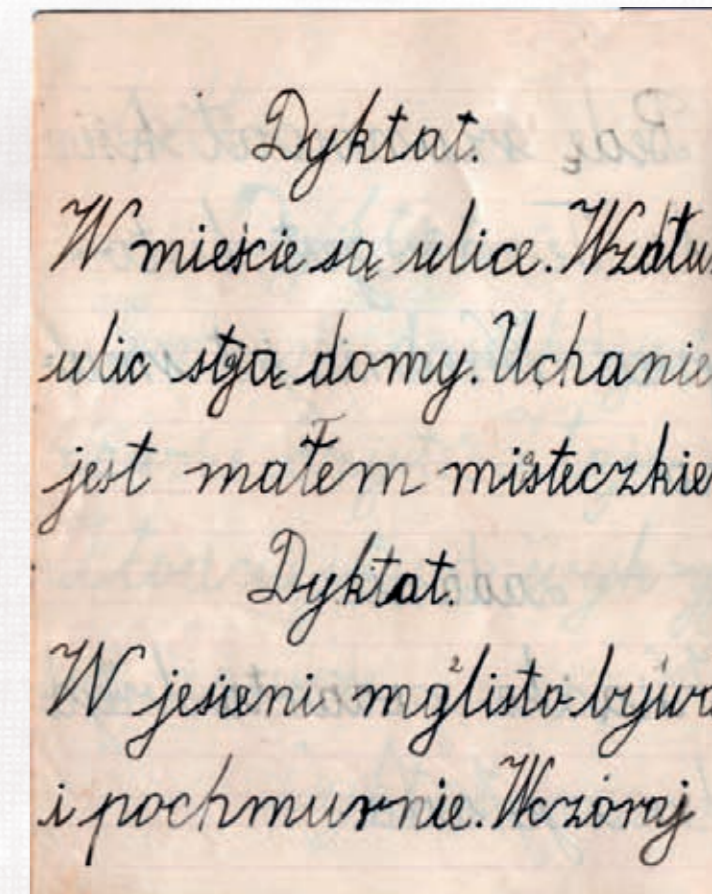 Dyktat.
W mieście są ulice. Wzdłu
ulic stoją domy. Uchanie
jest małem misteczkie
Dyktat.
W jesieni mglisto bywa
i pochmurnie. Wczóraj